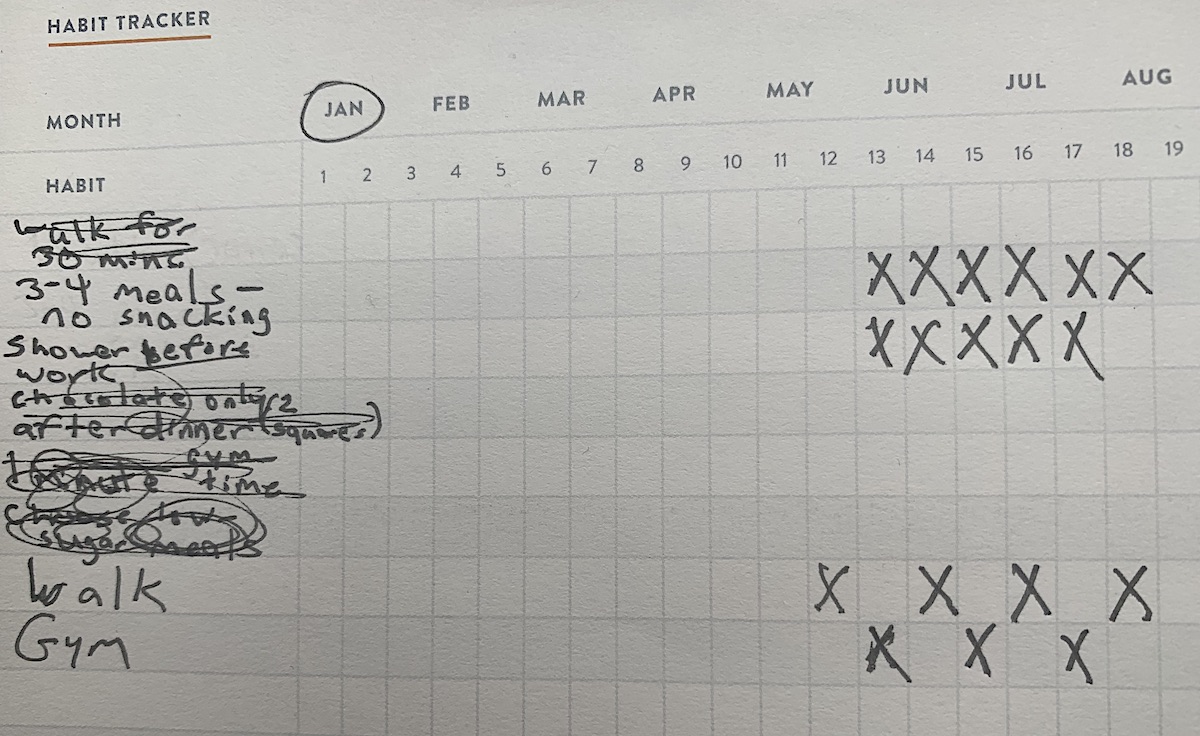 HABIT TRACKER
MONTH JAN FEB MAR APR MAY JUN JUL AUG
HABIT 1 2 3 4 5 6 7 8 9 10 11 12 13 14 15 16 17 18 19
walk for
30 mins
3-4 meals - X X X X X X
no snacking
Shower before X X X X X
work
chocolate only (2
after dinner squares)
gym
time
sugar meals
Walk X X X X
Gym X X X